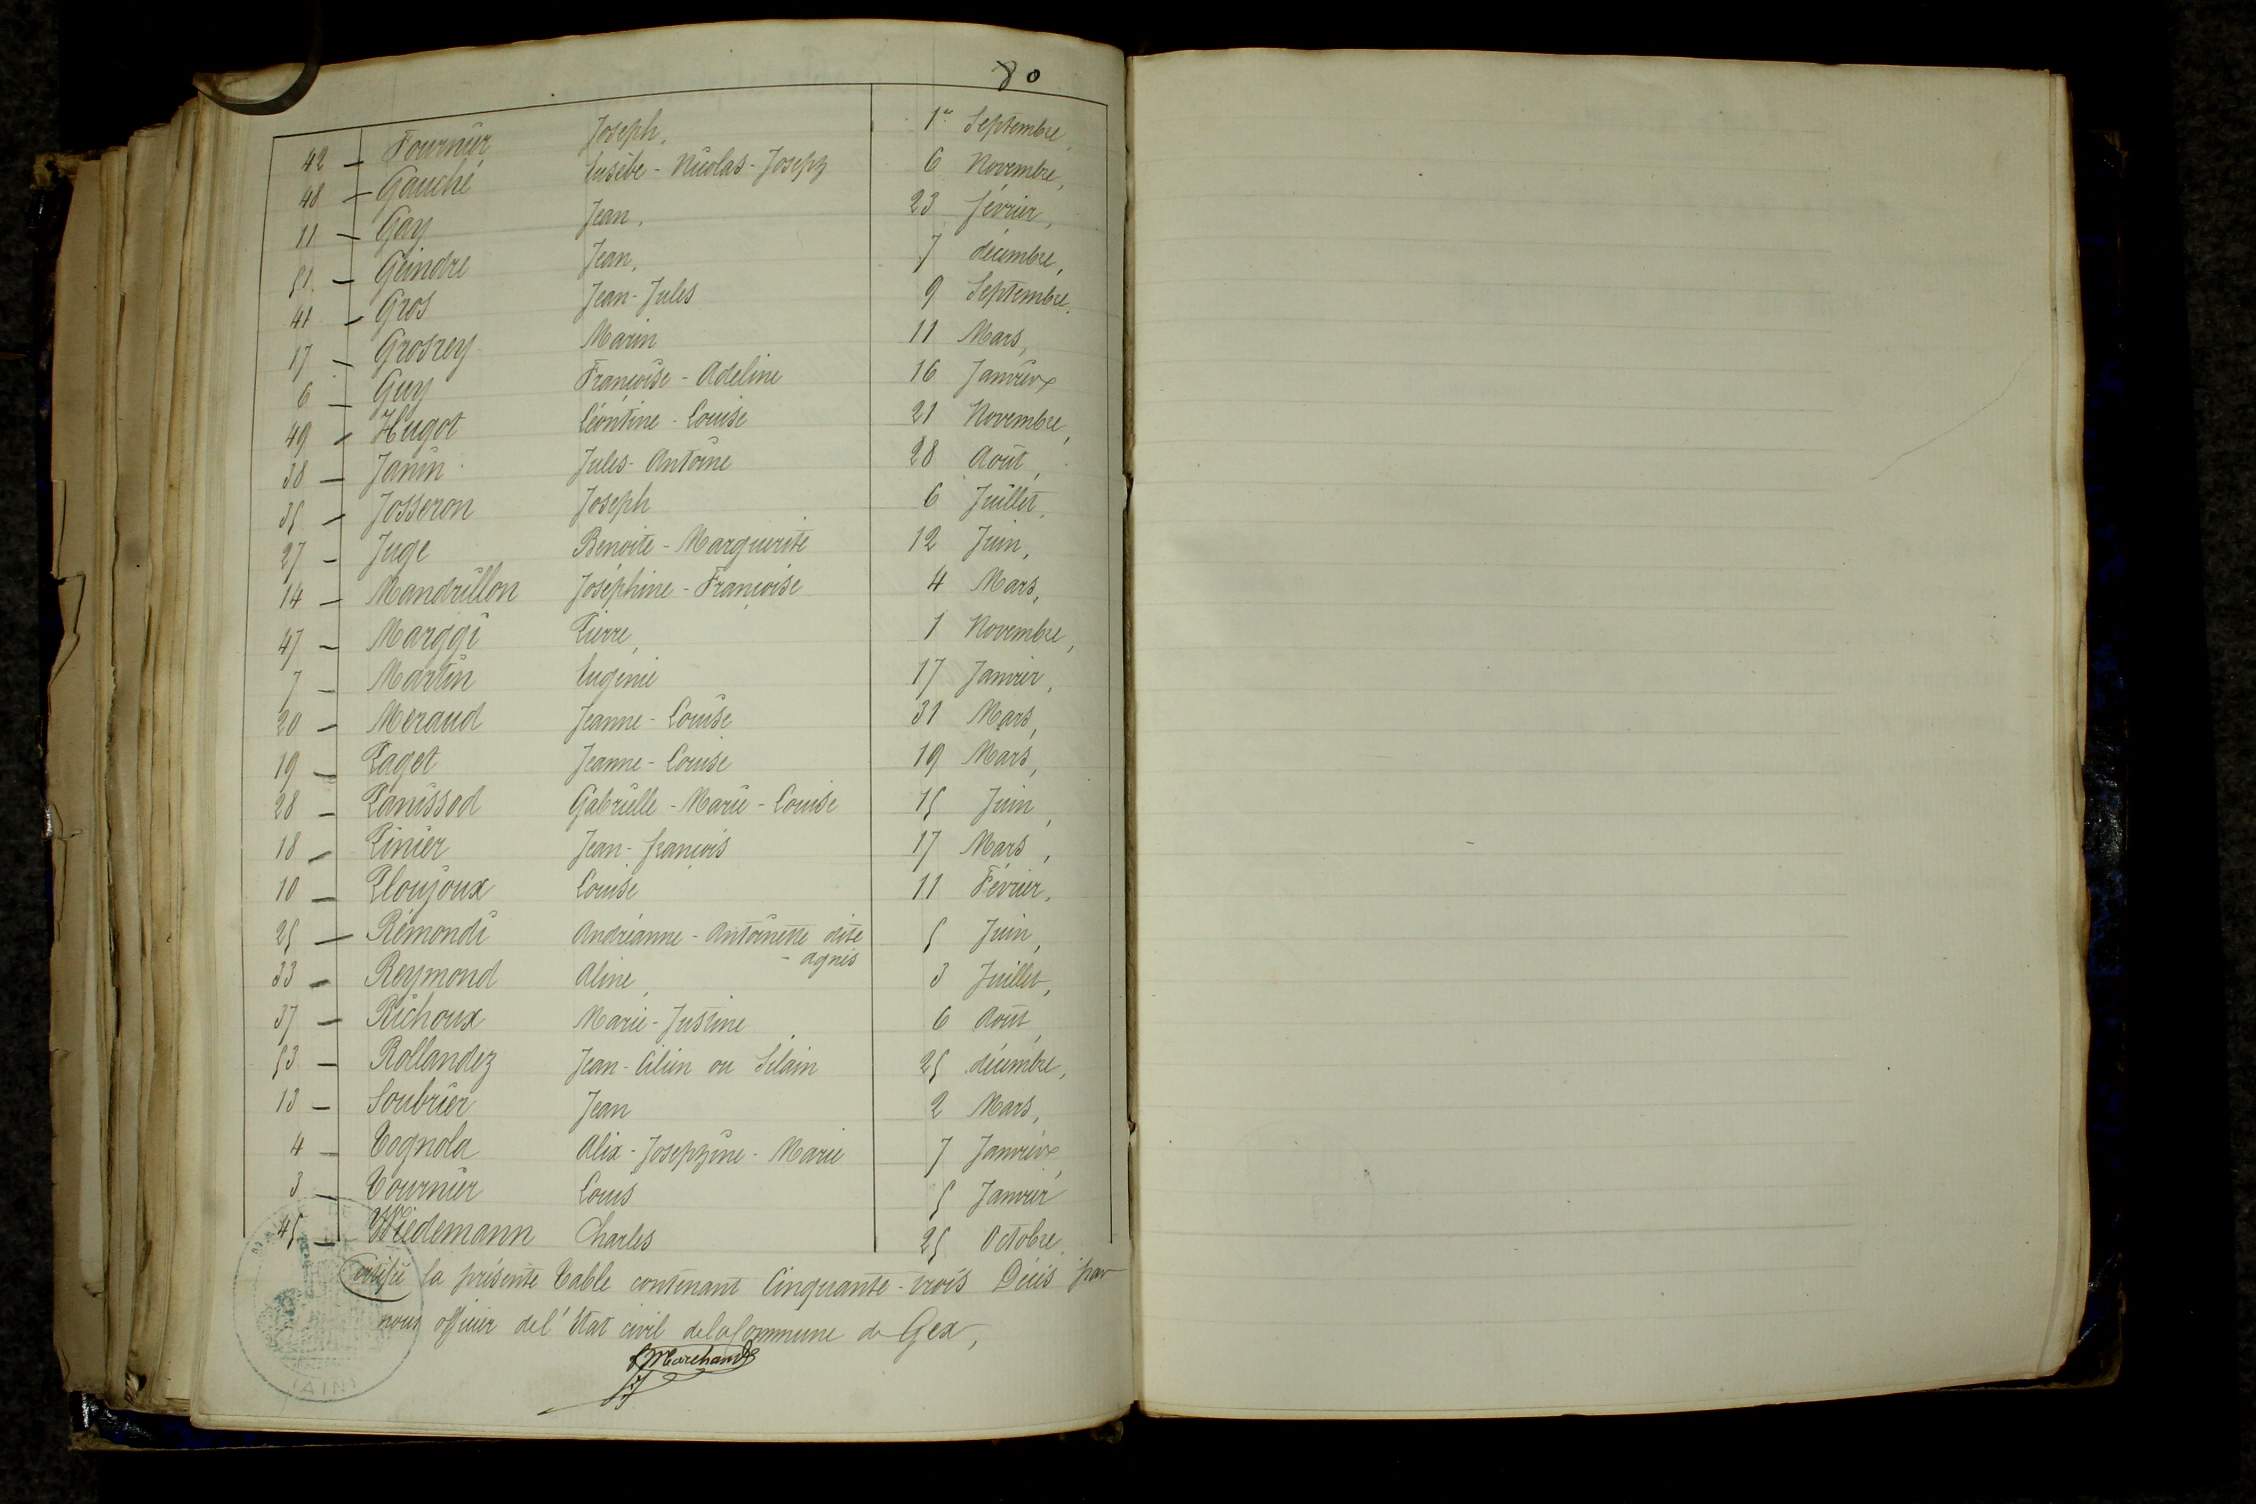 80
42 — Fournier Joseph, 1er Septembre,
48 — Gauché Eusèbe - Nicolas - Joseph 6 Novembre,
11 — Gay Jean, 23 février,
51 — Geindre Jean, 7 décembre,
41 — Gros Jean - Jules 9 Septembre,
17 — Grosrey Marin 11 Mars,
6 — Guy Françoise - Adeline 16 Janvier
49 — Hugot Léontine - Louise 21 Novembre,
38 — Janin Jules - Antoine 28 Août,
35 — Josseron Joseph 6 Juillet,
27 — Juge Benoite - Marguerite 12 Juin,
14 — Mandrillon Joséphine - Françoise 4 Mars,
47 — Marggi Pierre, 1 Novembre,
7 — Martin Eugénie 17 Janvier,
20 — Meraud Jeanne - Louise 31 Mars,
19 — Paget Jeanne - Louise 19 Mars,
28 — Panissod Gabrielle - Marie - Louise 15 Juin,
18 — Pinier Jean - françois 17 Mars,
10 — Ploujoux Louise 11 Février,
25 — Rémondi Andréanne - Antoinette dite 5 Juin,
- agnès
33 — Reymond Aline, 3 Juillet,
37 — Richoux Marie - Justine 6 Août,
53 — Rollandez Jean - Cilien ou Silain 25 décembre,
13 — Soubrier Jean 2 Mars,
4 — Tognola Alix - Josephine - Marie 7 Janvier,
3 — Tournier Louis 5 Janvier
45 — Wiedemann Charles 25 Octobre
Certifié la présente Table contenant Cinquante - trois Décès par
nous officier de l'État civil de la Commune de Gex,
Marchand
(AIN)